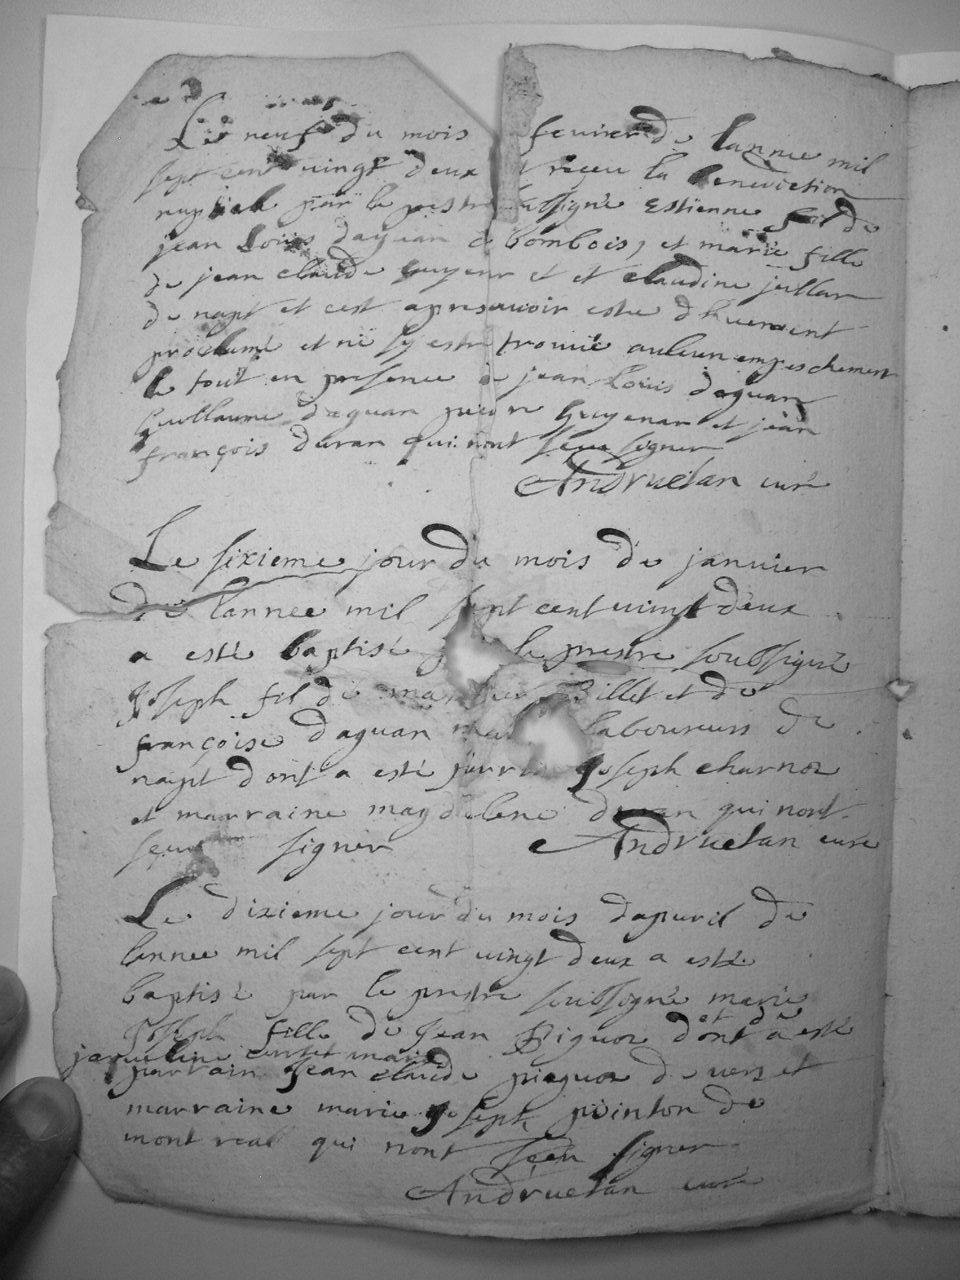 Le neuf du mois fevrier de lannee mil
sept cent vingt deux receu la benediction
nuptiale par le prestre soussigné Estienne fil de
jean Louis daguan de bombois, et marie fille
de jean claude guyenr et et claudine jullan
de napt et cest apres avoir estre dhuement
proclamé et ne sy estre trouvé auleun empeschement
le tout en presence de jean Louis daguan
guillaume daguan guyenar et jean
françois duran qui nont sceu signer
Andruelan curé
Le sixieme jour du mois de janvier
de lannee mil sept cent vingt deux
a esté baptisé le prestre soubsigné
Joseph fil de Billet et de
françoise daguan laboureurs de
napt dont a esté parrain joseph charnoz
et marraine magdelene duran qui nont
sceu signer Andruelan curé
Le dixieme jour du mois dapvril de
lannee mil sept cent vingt deux a esté
baptisé par le prestre soubsogné marie
et de
Joseph fille de Jean Biguoz dont a esté
jaqueline marié
parrain Jean claude pieguoz de vers et
marraine marie joseph pointon de
mont real qui nont sceu signer
Andruelan curé